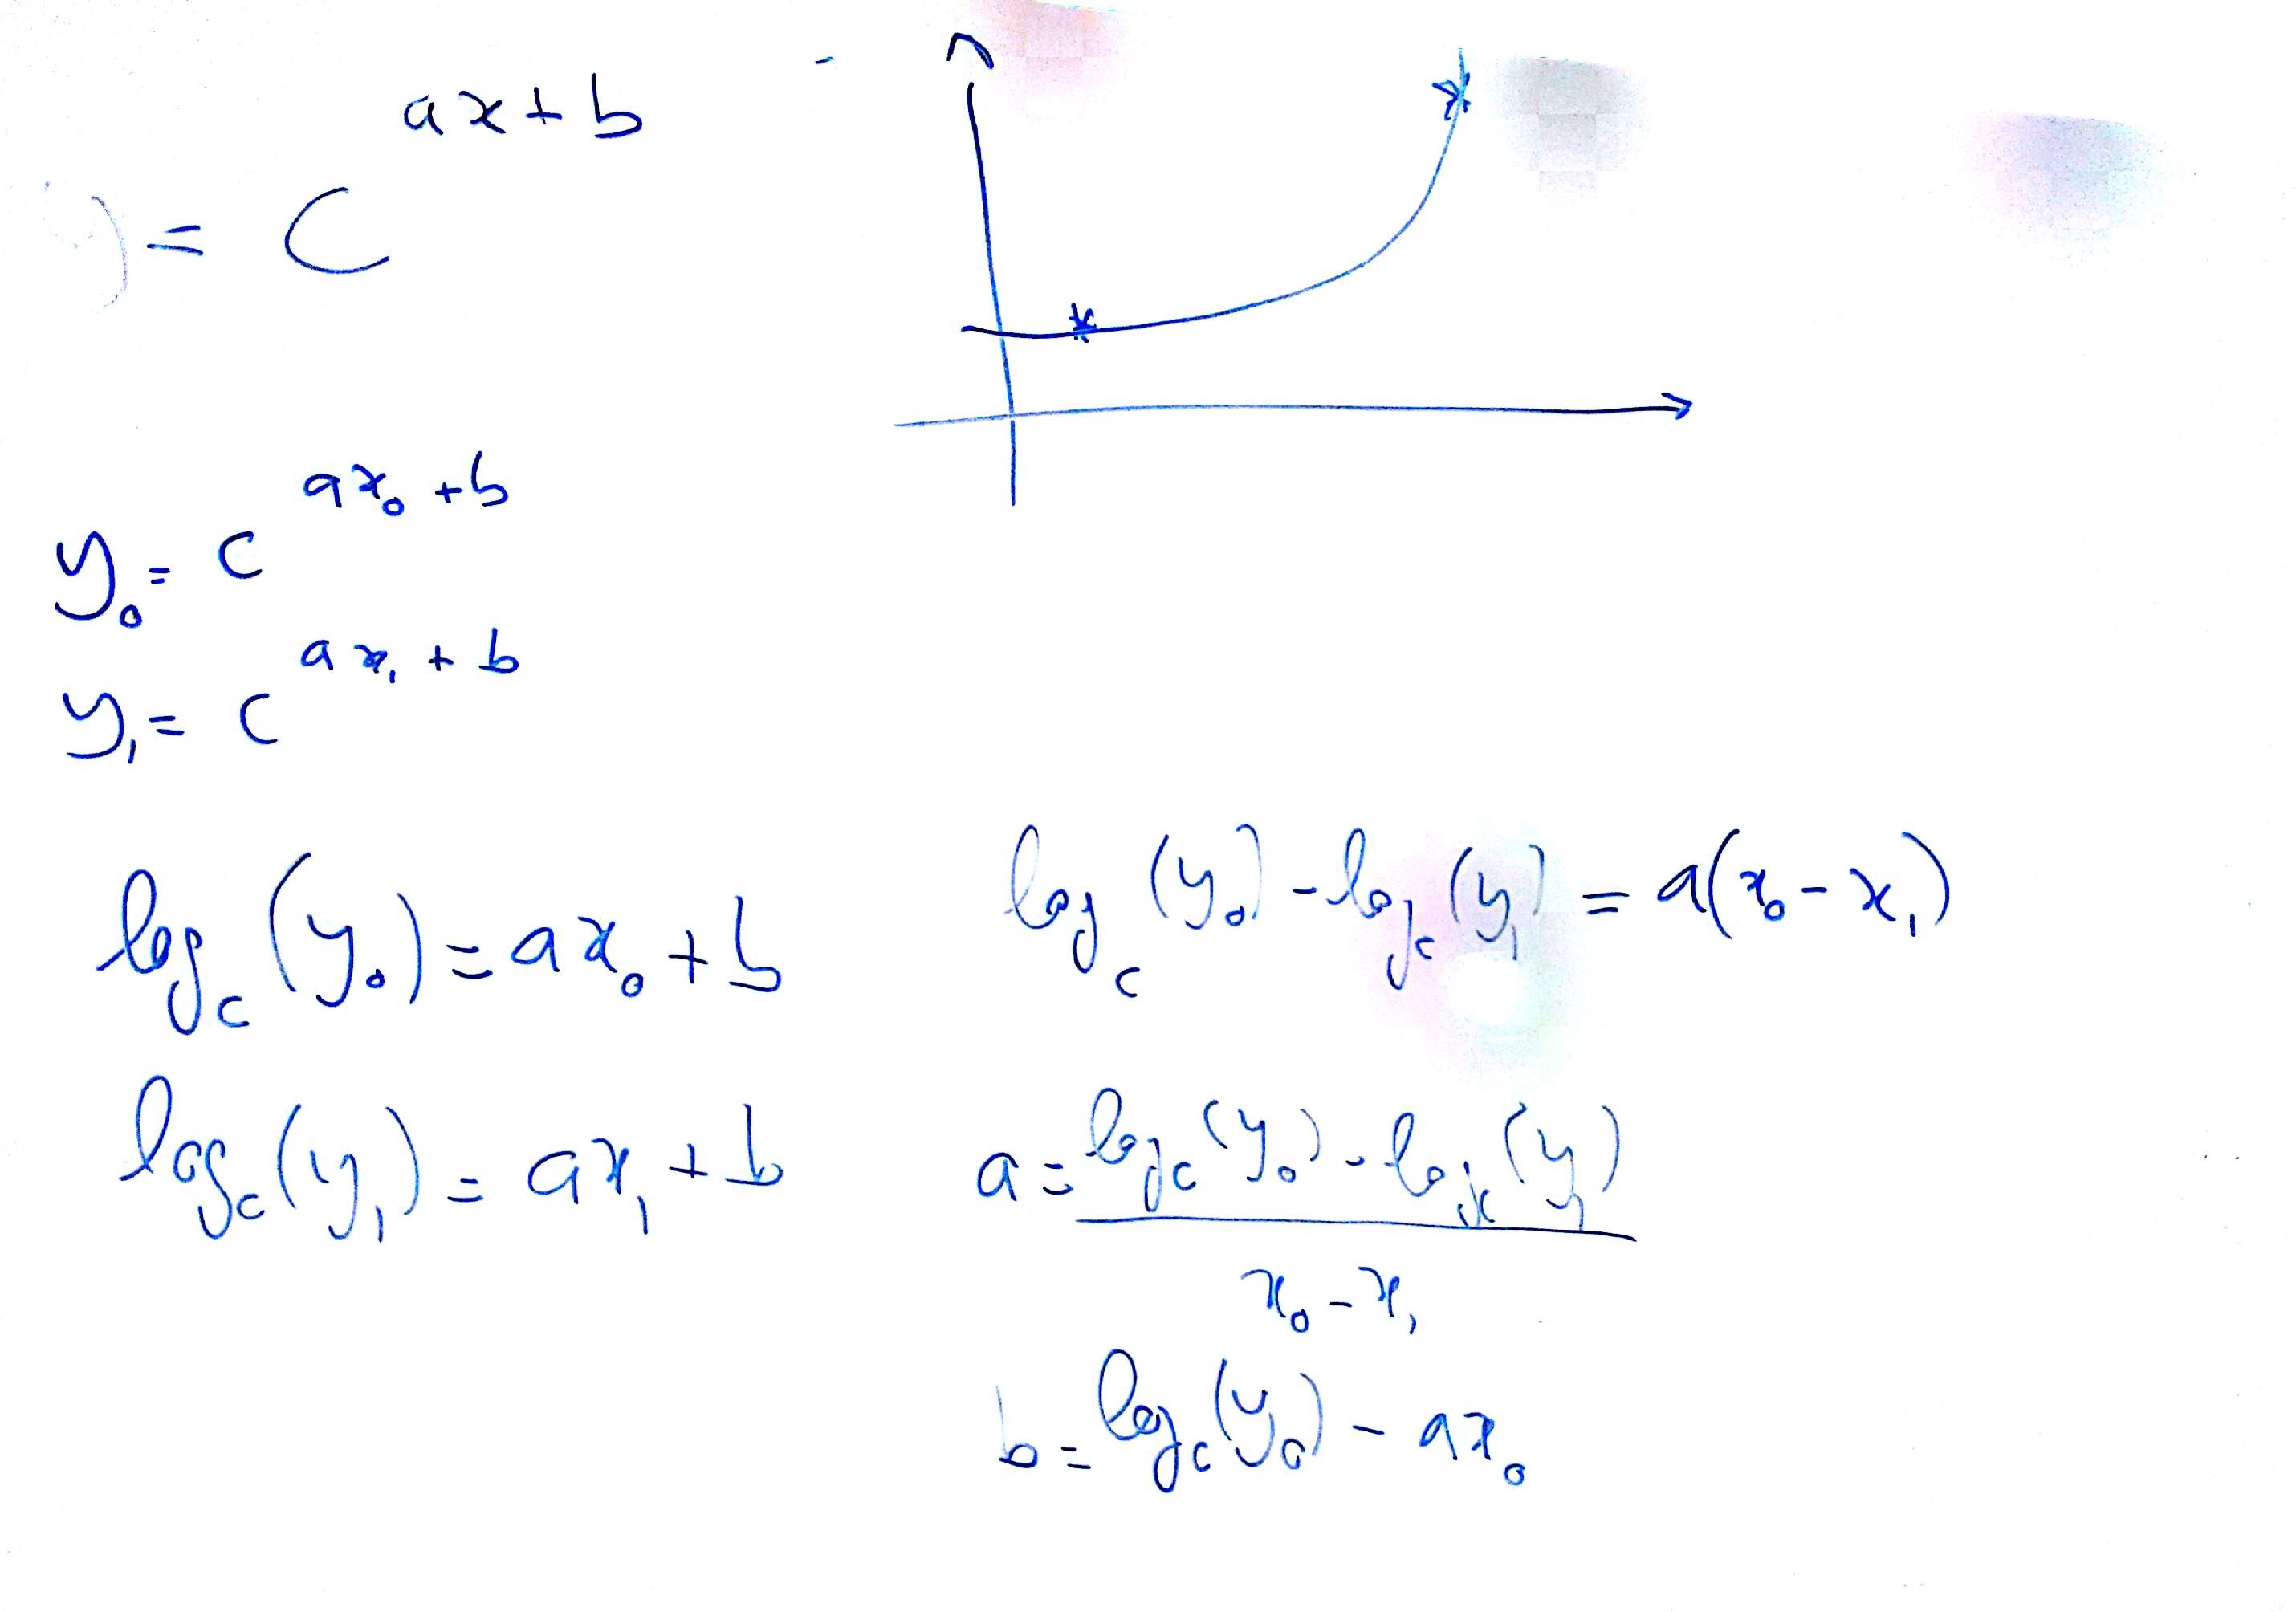 y = C^{ax+b}
y₀ = c^{ax₀+b}
y₁ = c^{ax₁+b}
log_c(y₀) = ax₀ + b
log_c(y₁) = ax₁ + b
log_c(y₀) - log_c(y₁) = a(x₀ - x₁)
a = (log_c(y₀) - log_c(y₁)) / (x₀ - x₁)
b = log_c(y₀) - ax₀